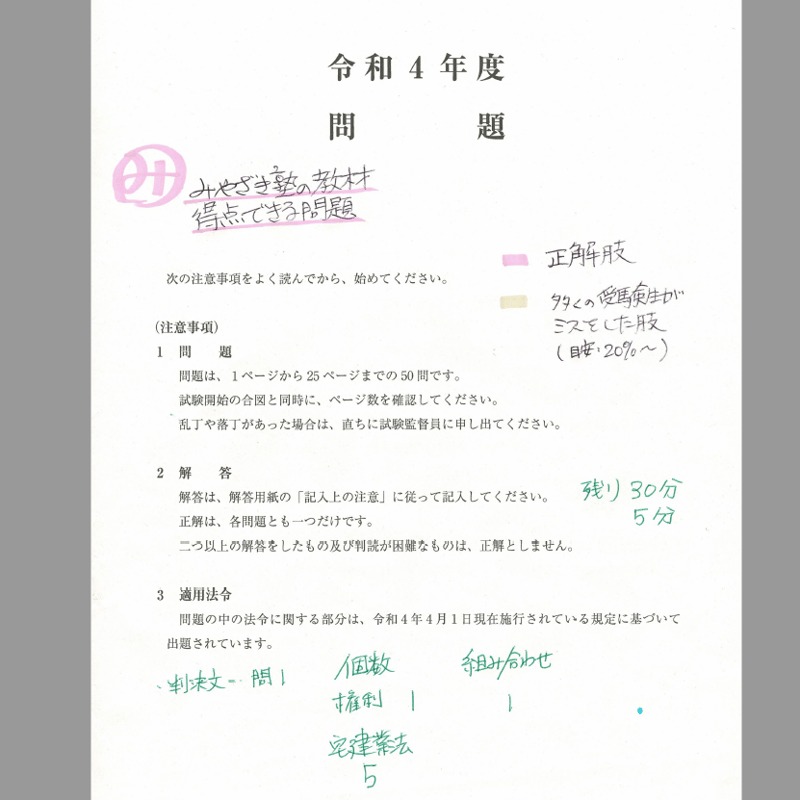 令和4年度
問 題
み
みやざき塾の教材
得点できる問題
次の注意事項をよく読んでから、始めてください。
正解肢
多くの受験生が
ミスをした肢
(目安:20%~)
(注意事項)
1 問 題
問題は、1ページから25ページまでの50問です。
試験開始の合図と同時に、ページ数を確認してください。
乱丁や落丁があった場合は、直ちに試験監督員に申し出てください。
2 解 答
解答は、解答用紙の「記入上の注意」に従って記入してください。
正解は、各問題とも一つだけです。
二つ以上の解答をしたもの及び判読が困難なものは、正解としません。
残り 30分
5分
3 適用法令
問題の中の法令に関する部分は、令和4年4月1日現在施行されている規定に基づいて
出題されています。
・判決文… 問1
個数
権利 1
宅建業法
5
組み合わせ
1